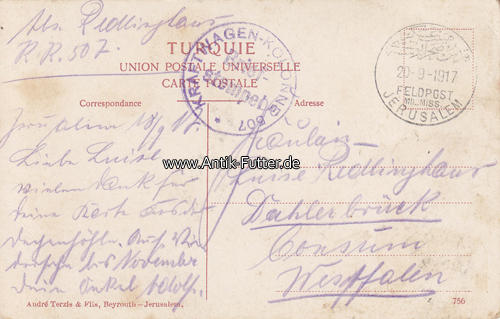 Abs. Redlinghaus
K.K. 507.
TURQUIE
UNION POSTALE UNIVERSELLE
CARTE POSTALE
KRAFTWAGEN-KOLONNE 507
20-9-1917
FELDPOST
MIL. MISS.
JERUSALEM
Correspondance
Adresse
Jerusalem 18/9 17
Liebe Luise
vielen Dank für
deine Karte aus der
Dechenhöhle. Auf
bis November
dein Onkel Adolf.
Fräulein
Luise Redlinghaus
Dahlerbrück
Consum
Westfalen
www.Antik-Futter.de
André Terzis & Fils, Beyrouth—Jerusalem.
756